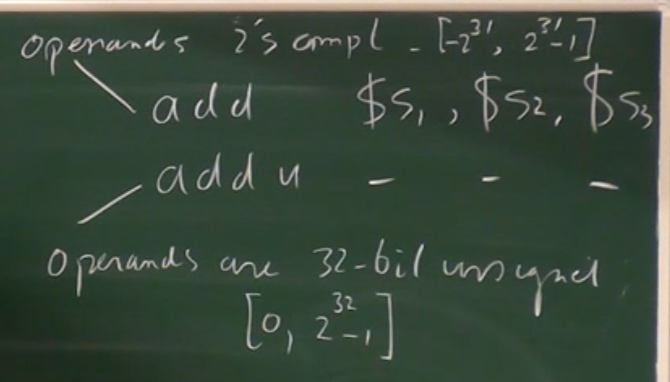 operands 2's compl - [-2³¹, 2³¹-1]
add $s₁, $s₂, $s₃
addu - - -
operands are 32-bit unsigned
[0, 2³²-1]